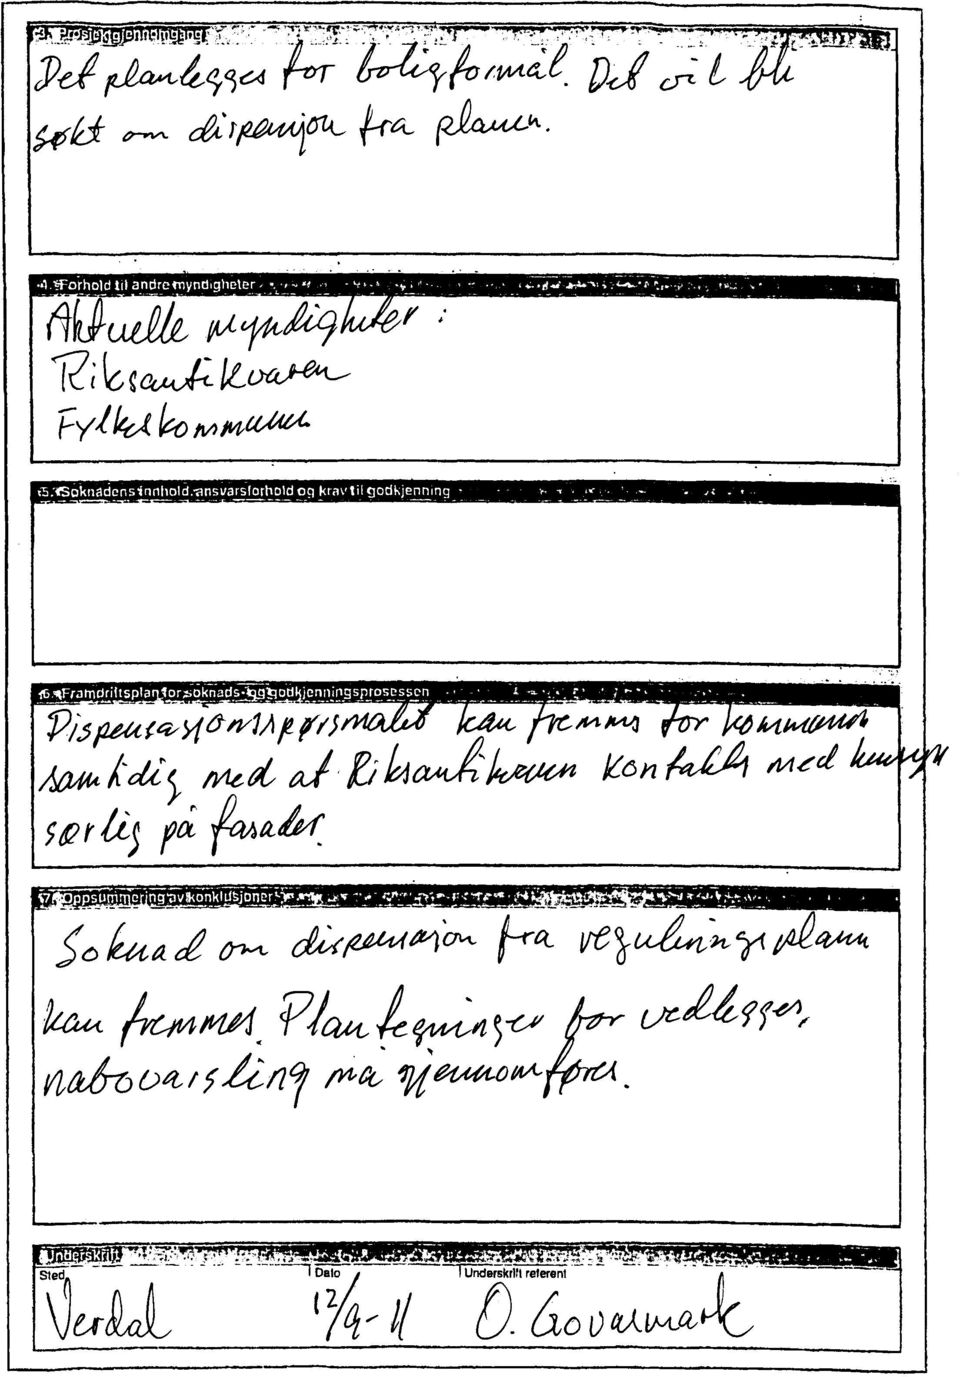 3. Prosjektgjennomgang
Det planlegges for boligformål. Det vil bli
søkt om dispensasjon fra planen.
4. Forhold til andre myndigheter
Aktuelle myndigheter :
Riksantikvaren
Fylkeskommunen
5. Søknadens innhold, ansvarsforhold og krav til godkjenning
6. Framdriftsplan for søknads- og godkjenningsprosessen
Dispensasjonsspørsmålet kan fremmes for kommunen
samtidig med at Riksantikvaren kontaktes med hensyn
særlig på fasader.
7. Oppsummering av konklusjoner
Soknad om dispensasjon fra reguleringsplanen
kan fremmes. Plantegninger bør vedlegges,
nabovarsling må gjennomføres.
Underskrift
Sted Dato Underskrift referent
Verdal 12/9-11 O. Govasmark